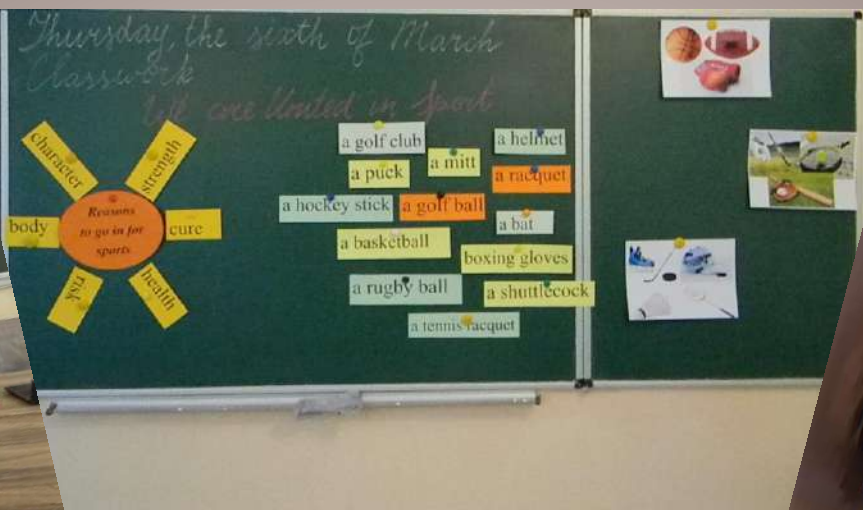 Thursday, the sixth of March
Classwork
We are United in Sport
character
strength
body
Reasons
to go in for
sports
cure
risk
health
a golf club
a helmet
a puck
a mitt
a racquet
a hockey stick
a golf ball
a bat
a basketball
boxing gloves
a rugby ball
a shuttlecock
a tennis racquet